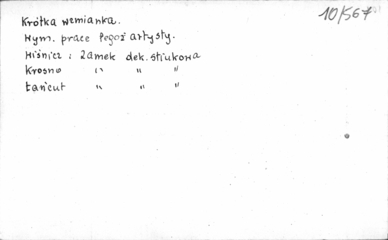 10/567
Krótka wzmianka.
Wym. prace tegoż artysty.
Wiśnicz : Zamek dek. stiukowa
Krosno " " "
Łańcut " " "